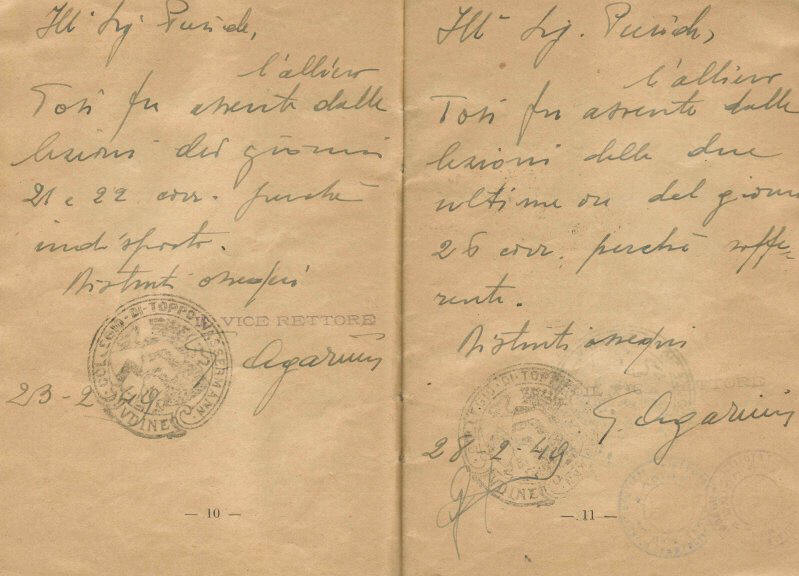 Ill. Sig. Preside,
l'allievo
Tosi fu assente dalle
lezioni dei giorni
21 e 22 corr. perché
indisposto.
Distinti ossequi
VICE RETTORE
COLLEGIO · DI · TOPPO · WASSERMANN
UDINE
23-2-49
— 10 —
Ill. Sig. Preside,
l'allievo
Tosi fu assente dalle
lezioni delle due
ultime ore del giorno
26 corr. perché soffe-
rente.
Distinti ossequi
IL VICE RETTORE
DI · TOPPO
UDINE
28-2-49
— 11 —